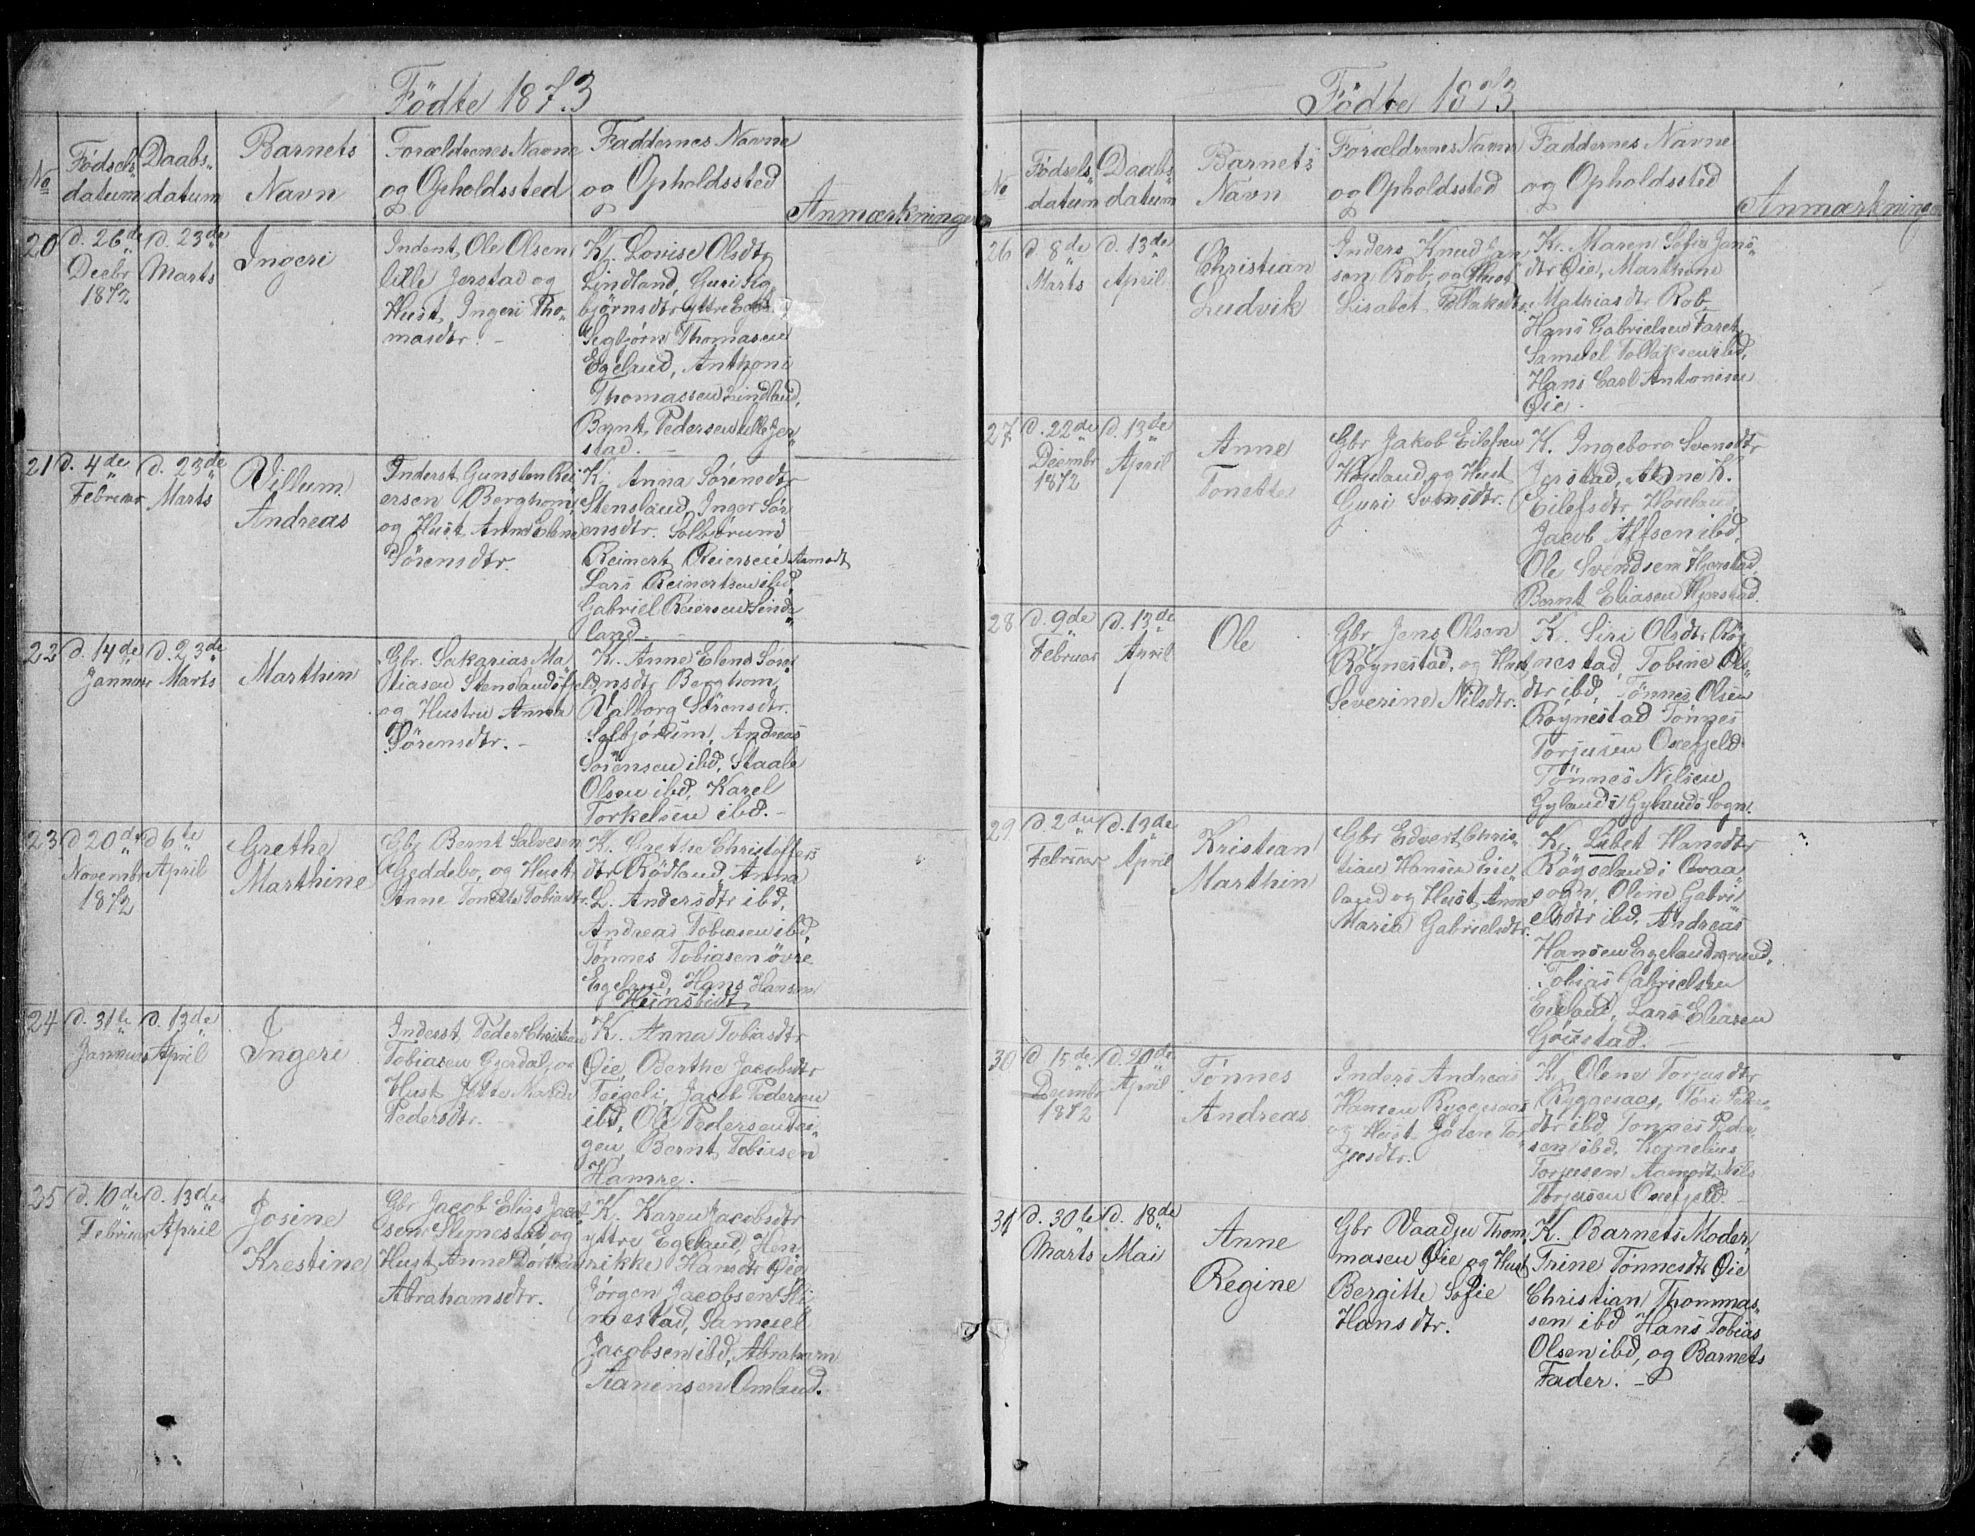 Födte 1873
No
Födsels-
datum
Daabs-
datum
Barnets
Navn
Forældrenes Navne
og Opholdssted
Faddernes Navne
og Opholdssted
Anmærkninger
20
d. 26de
Decbr
1872
d. 23de
Marts
Ingeri
Inderst Ole Olsen
lille Jerstad og
Hust. Ingeri Tho-
masdtr. -
K. Lovise Olsdtr
Lindland, Guri Sig
björnsdtr Yttre
Segbjörn Thomasen
Egelund, Anthoni
Thomassen Lindland,
Bernt Pedersen lille Jer-
stad. -
21
d. 4de
Februar
d. 23de
Marts
Villum
Andreas
Inderst Gunsten Rei
ersen Berghom,
og Hust Anne Elene
Sörensdtr.
K. Anna Sörensdtr
Stensland, Inger Sör
ensdtr. Solbjörum
Reinert Reiersen Aamodt
Lars Reinertsen ibd,
Gabriel Reiersen Linde
land. -
22
d. 14de
Januar
d. 23de
Marts
Marthin
Gbr. Sakarias Ma
tiasen Stenslandsfjeld
og Hustru Anna
Sörensdtr. -
K. Anne Elene Sör
ensdtr Berghom,
Valborg Sörensdtr.
Solbjörum, Andreas
Sörensen ibd, Staale
Olsen ibd, Karel
Torkelsen ibd. -
23
d 20de
Novembr
1872
d 6te
April
Grethe
Marthine
Gbr Bernt Salvesen
Geddebo, og Hust.
Anne Tonette Tobiasdtr.
K. Grethe Christoffers
dtr Rödland, Anna
L. Andersdtr ibd,
Andreas Tobiasen ibd,
Tönnes Tobiasen övre
Egeland, Hans Hansen
24
d. 31te
Januar
d. 13de
April
Ingeri
Inderst Peder Christian
Tobiasen Gjerdal, og
Hust
Pedersdtr.
K. Anna Tobiasdtr
Öie, Berthe Jacobsdtr
Feigeli, Jacob Pedersen
ibd, Ole Pedersen Fei-
geli, Bernt Tobiasen
Hamre. -
35
d. 10de
Februar
d. 13de
April
Josine
Krestine
Gbr Jacob Elias Jacob
sen Slimestad, og
Hust Anne Dorthea
Abrahamsdtr.
K. Karen Jacobsdtr
yttre Egeland, Hen-
rikke Hansdtr Öie
Jörgen Jacobsen Sli-
mestad, Samuel
Jacobsen ibd, Abraham
Aanensen Omland.
Födte 1873
No
Födsels-
datum
Daabs-
datum
Barnets
Navn
Forældrenes Navne
og Opholdssted
Faddernes Navne
og Opholdssted
Anmærkninger
26
d. 8de
Marts
d. 13de
April
Christian
Ludvik
Inders Knud Jan
sen Rob, og Hust
Lisabet Tollaksdtr.
K. Maren Sofie Jans-
dtr Öie, Marthene
Mathiasdtr Rob
Hans Gabrielsen Faret
Samuel Tollaksen ibd,
Hans Carl Antonsen
Öie. -
27
d. 22de
Decembr
1872
d. 13de
April
Anne
Tonette
Gbr Jakob Eilefsen
Houland og Hust
Guri Svensdtr.
K. Ingeborg Svensdtr
Jerstad, Anne K.
Eilefsdtr. Houland,
Jacob Alfsen ibd,
Ole Svendsen Hjerstad,
Bernt Eliasen Hjerstad.
28
d. 9de
Februar
d. 13de
April
Ole
Gbr, Jens Olsen
Rögnestad, og Hust
Severine Nilsdtr.
K. Siri Olsdtr Rög
nestad, Tobine Ols-
dtr ibd, Tönnes Olsen
Rögnestad Tönnes
Torjusen Oxefjeld
Tönnes Nilsen
Gyland i Gylands Sogn.
29
d. 2den
Februar
d. 13de
April
Kristian
Marthin
Gbr Edvert Chris-
tian Hansen Eie
land og Hust, Anne
Maria Gabrielsdtr.
K. Lisbet Hansdtr
Rögseland i Qvaa-
sogn, Oline Gabri
elsdtr ibd. Andreas
Hansen
Tobias Gabrielsen
Eieland, Lars Eliasen
30
d 15de
Decembr
1872
d. 20de
April
Tönnes
Andreas
Inders Andreas
Hansen Ryggesaas
og Hust Joren Tor
jusdtr.
K. Olene Torjusdtr
Ryggesaas, Tori Peders-
dtr ibd, Tönnes Peder-
sen ibd, Kornelius
Torjusen Aamot, Nils
Torjusen Oxefjeld.
31
d. 30te
Marts
d. 18de
Mai
Anne
Regine
Gbr Vaadju Thom
masen Öie og Hust
Bergitte Sofie
Hansdtr.
K. Barnets Moder,
Trine Tönnesdtr Öie
Christian Thommas-
sen ibd Hans Tobias
Olsen ibd, og Barnets
Fader. -